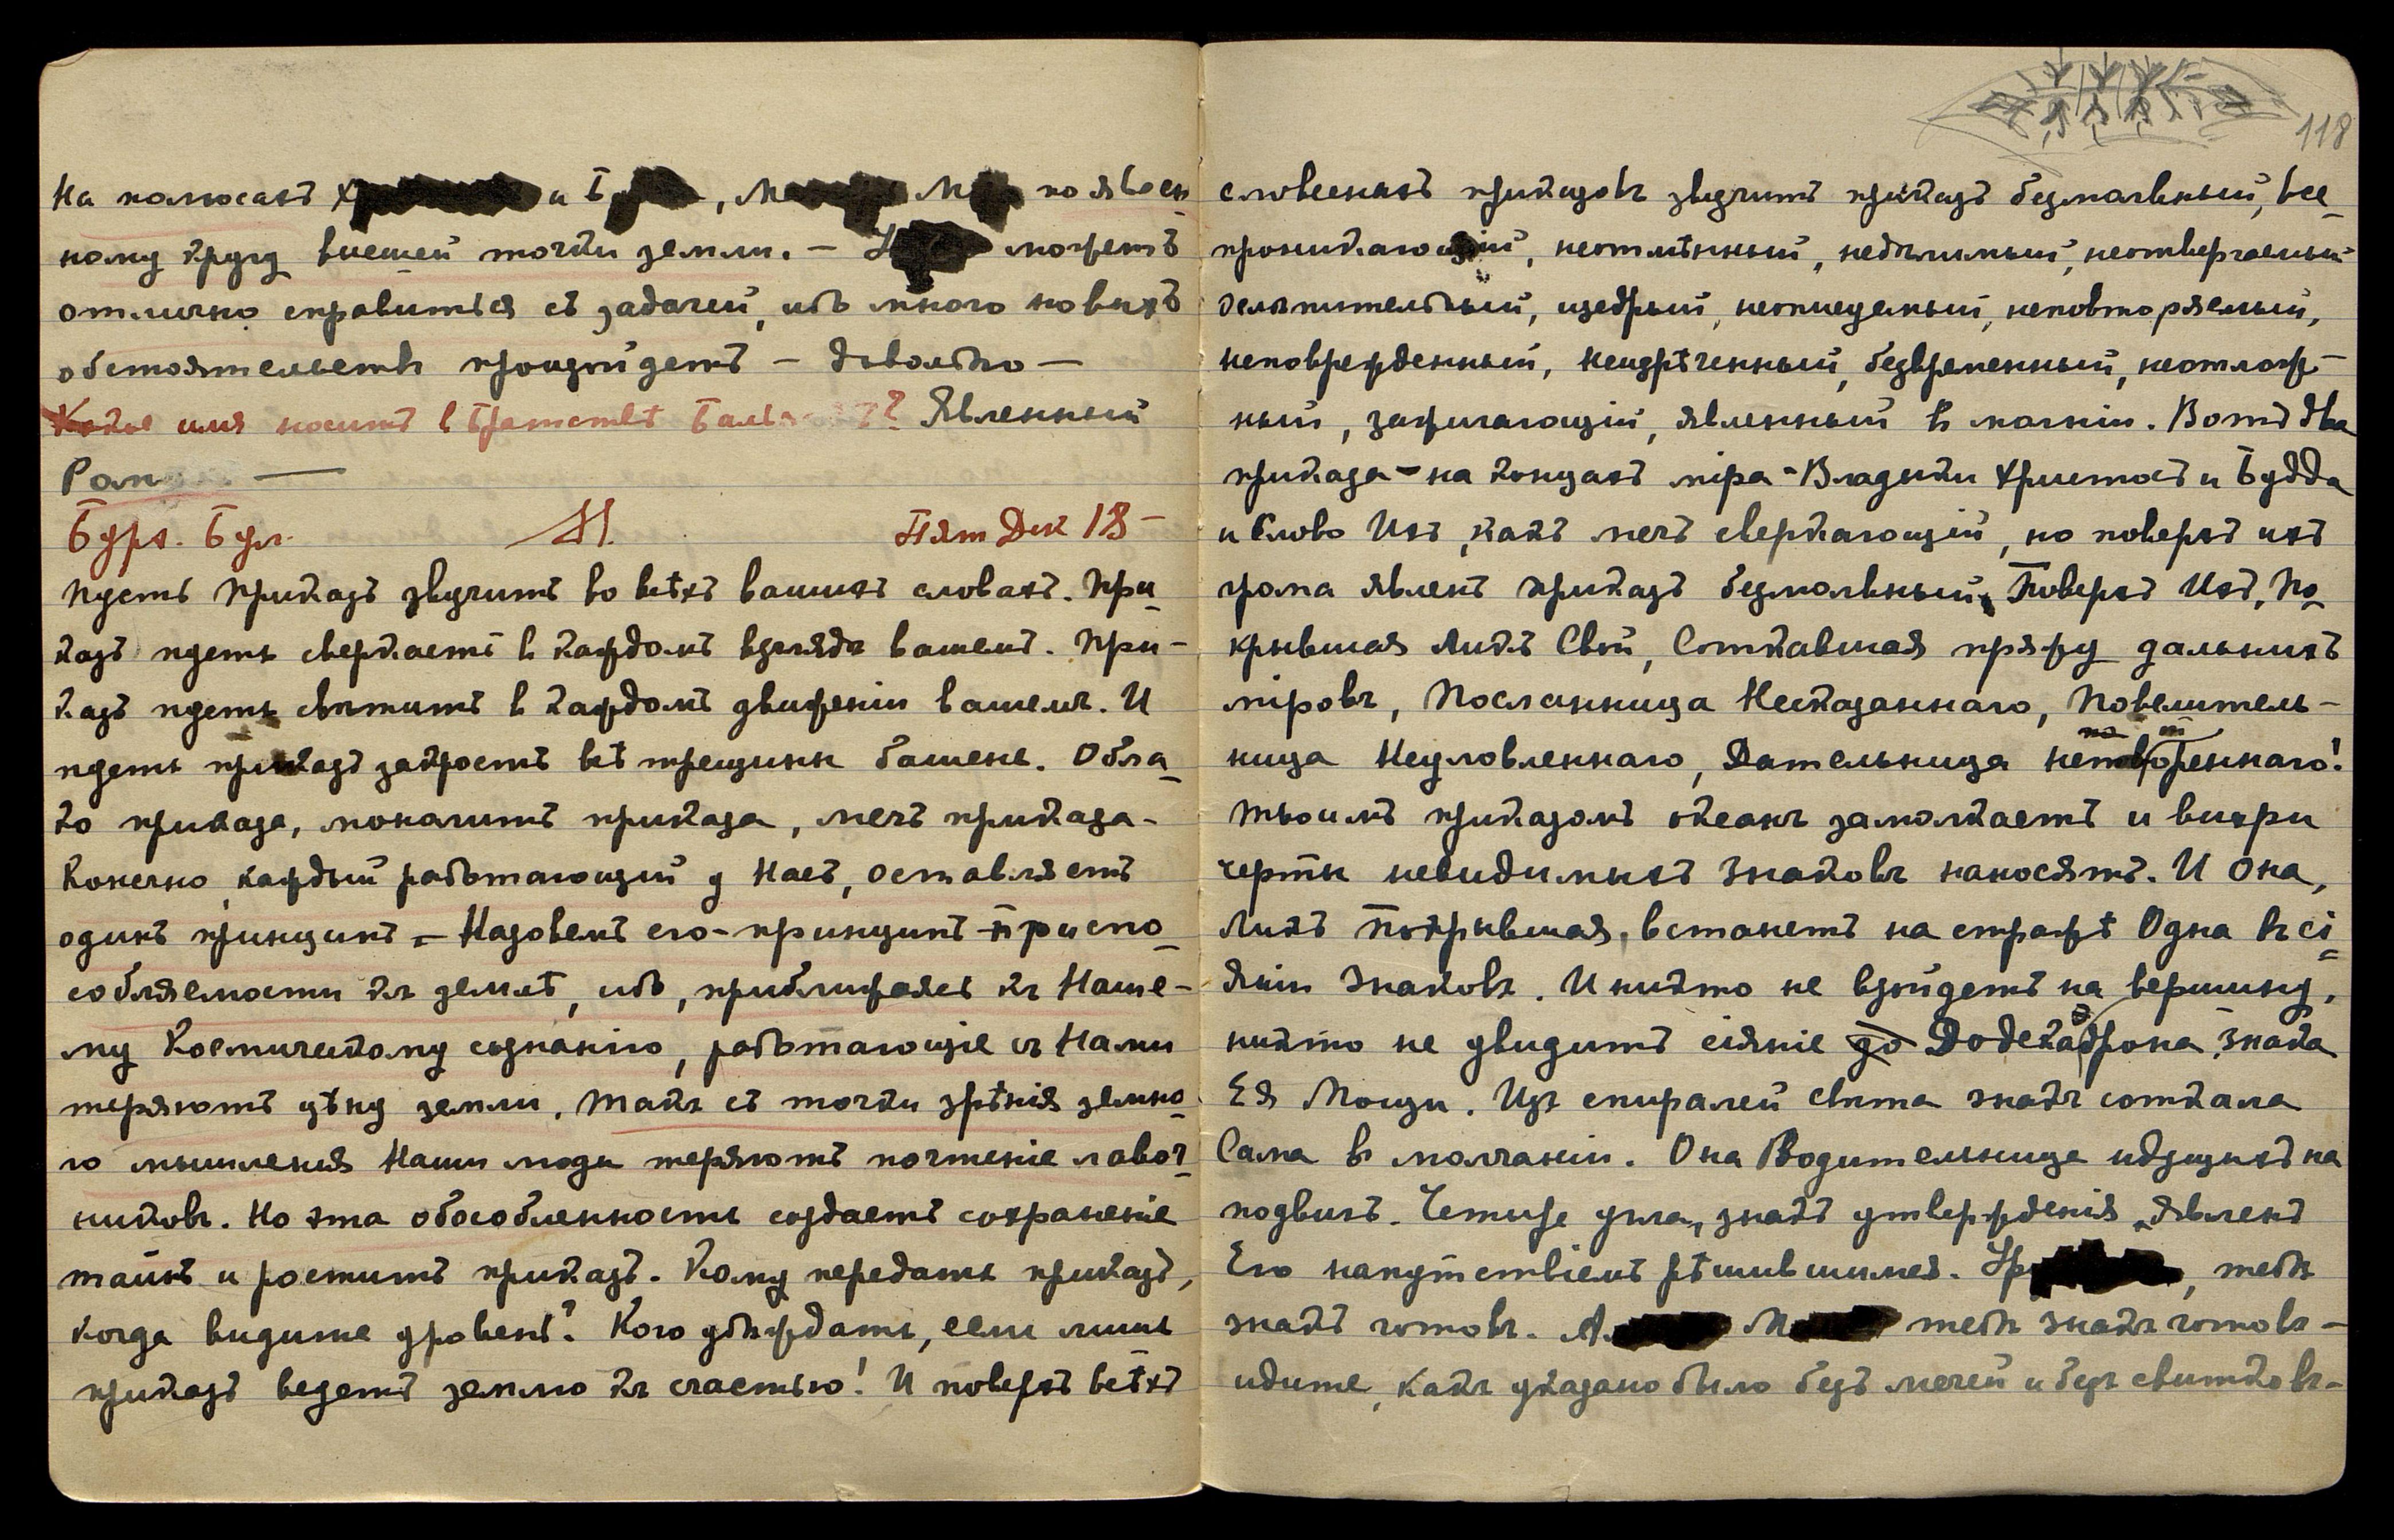 На полюсахъ и , по явлен
ному кругу внешей точки земли. — можетъ
отлично справиться съ задачей, ибо много новыхъ
обстоятельствъ произойдетъ — довольно —
Какое имя носитъ в Братствѣ Явленный
Бурх. Бул. М. Пят Дек 18 —
Пусть Приказъ звучитъ во всѣхъ вашихъ словахъ. При
казъ пусть сверкаетъ в каждомъ взглядѣ вашемъ. При-
казъ пусть свѣтитъ в каждомъ движеніи вашемъ. И
пусть приказъ закроетъ всѣ трещины башенъ. Обла
ко приказа, мокачитъ приказа, мечъ приказа -
Конечно, каждый работающій у Насъ, оставляетъ
одинъ принципъ — Назовемъ его - принципъ приспо
собляемости къ землѣ, ибо, приближаясь къ Наше-
му Космическому сознанію, работающіе съ Нами
теряютъ цѣну земли. Такъ съ точки зрѣнія земно
го мышленія Наши люди теряютъ почтеніе лавоч
никовъ. Но эта обособленность создаетъ сохраненіе
тайнъ и роститъ приказъ. Кому передать приказъ,
когда видите уровень? Кого убѣждать, если лишь
приказъ ведетъ землю къ счастью! И поверхъ всѣхъ
118
словесныхъ приказовъ звучитъ приказъ безмолвный, все
проникающій, неотмѣнный, недѣлимый, неотвергаемый
ослѣпительный, щедрый, неописуемый, неповторяемый,
неповрежденный, неизрѣченный, безвременный, неотлож-
ный, зажигающій, явленный въ молніи. Вотъ два
приказа - на концахъ міра - Владыки Христосъ и Будда
и Слово Ихъ, какъ мечъ сверкающій, но поверхъ ихъ
грома явленъ приказъ безмолвный. Поверхъ Ихъ, По
крывшая Ликъ Свой, Соткавшая пряжу дальнихъ
міровъ, Посланница Несказаннаго, Повелитель-
ница Неуловленнаго, Дательница неповтореннаго!
Твоимъ приказомъ океанъ замолкаетъ и вихри
черты невидимыхъ знаковъ наносятъ. И Она,
Ликъ Покрывшая, встанетъ на стражѣ Одна въ сі
яніи Знаковъ. И никто не взойдетъ на вершину,
никто не увидитъ сіяніе до Додекаэдрона, знака
Ея Мощи. Изъ спиралей свѣта знакъ соткала
Сама въ молчаніи. Она Водительница идущихъ на
подвигъ. Четыре угла, знакъ утвержденія явленъ
Ею напутствіемъ рѣшившимся. , тебѣ
знакъ готовъ. тебѣ знакъ готовъ -
идите, какъ указано было безъ мечей и безъ свитковъ -